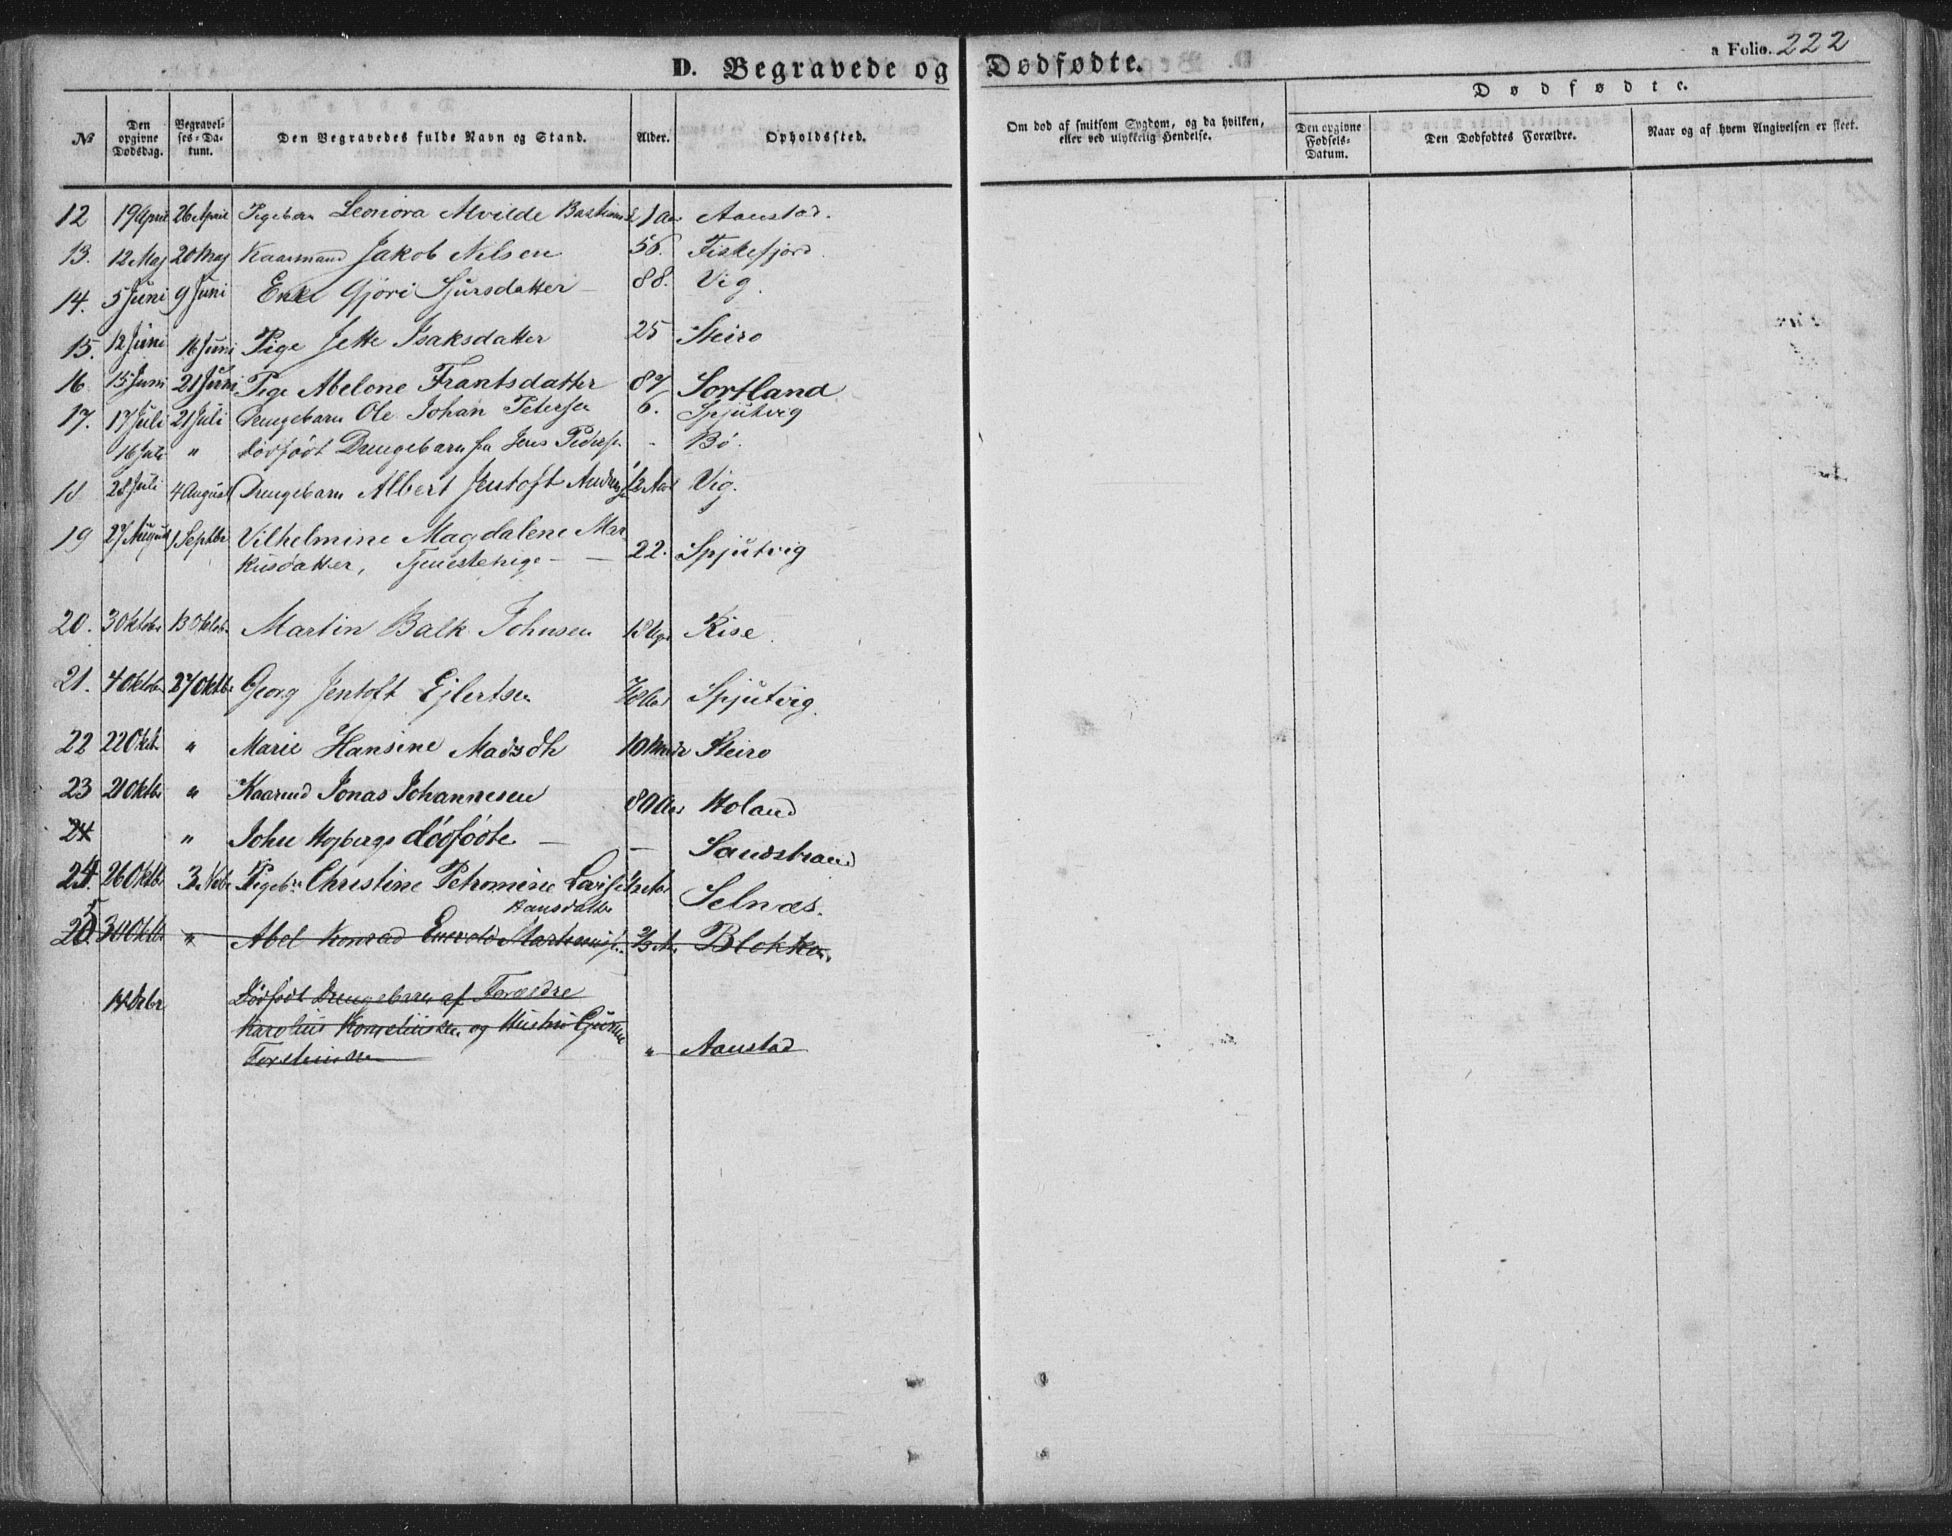 D. Begravede og Dødfødte.
a Folio. 222
Dødfødte.
№ Den opgivne Dødsdag. Begravelses-Datum. Den Begravedes fulde Navn og Stand. Alder. Opholdssted. Om død af smitsom Sygdom, og da hvilken, eller ved ulykkelig Hendelse. Den opgivne Fødsels-Datum. Den Dødfødtes Forældre. Naar og af hvem Angivelsen er skeet.
12 19 April 26 April Pigebarn Leonora Alvilde 1 Aar Aanstad.
13. 12 Maj 20 Maj Kaarmand Jakob Nilsen 56. Fiskefjord.
14. 5 Juni 9 Juni Enke Gjöri Sjursdatter 88. Vig.
15. 12 Juni 16 Juni Pige Jette Isaksdatter 25 Steiro
16 15 Juni 21 Juni Pige Abelone Frantsdatter 87 Sortland
17. 17 Juli 21 Juli Drengebarn Ole Johan Petersen 6. Spjutvig
16 Juli " dödfödt Drengebarn fra Jens Peders. - Bö.
18 28 Juli 4 August Drengebarn Albert Jentoft Vig.
19 27 August 1 Septbr Vilhelmine Magdalene Mar-
kusdatter, Tjenestepige - 22. Spjutvig
20. 3 Oktober 13 Oktobr Martin Balk Johnsen Rise.
21. 4 Oktober 27 Oktbr Georg Jentoft Ejlertsen Spjutvig.
22 22 Okt. " Marie Hansine Madsdtr 10 Mndr Steiro
23 21 Oktbr " Kaarmd Jonas Johannesen 80 Aar Holand
24 " John Hojbergs dödfödte - - Sandstrand
24. 26 Oktbr 3 Novbr Pigebn Christine Petromine Lovise
Hansdatter Selnæs.
25. 30 Oktbr " Abel Konrad Enevold Blokken.
Dödfödt Drengebarn af Forældre
Karolius Korneliussen og Hustru
" Aanstad